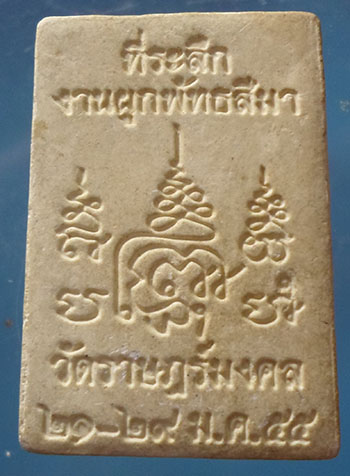 ที่ระลึก
งานผูกพัทธสีมา
วัดราษฎร์มงคล
๒๑-๒๙ ม.ค.๕๕